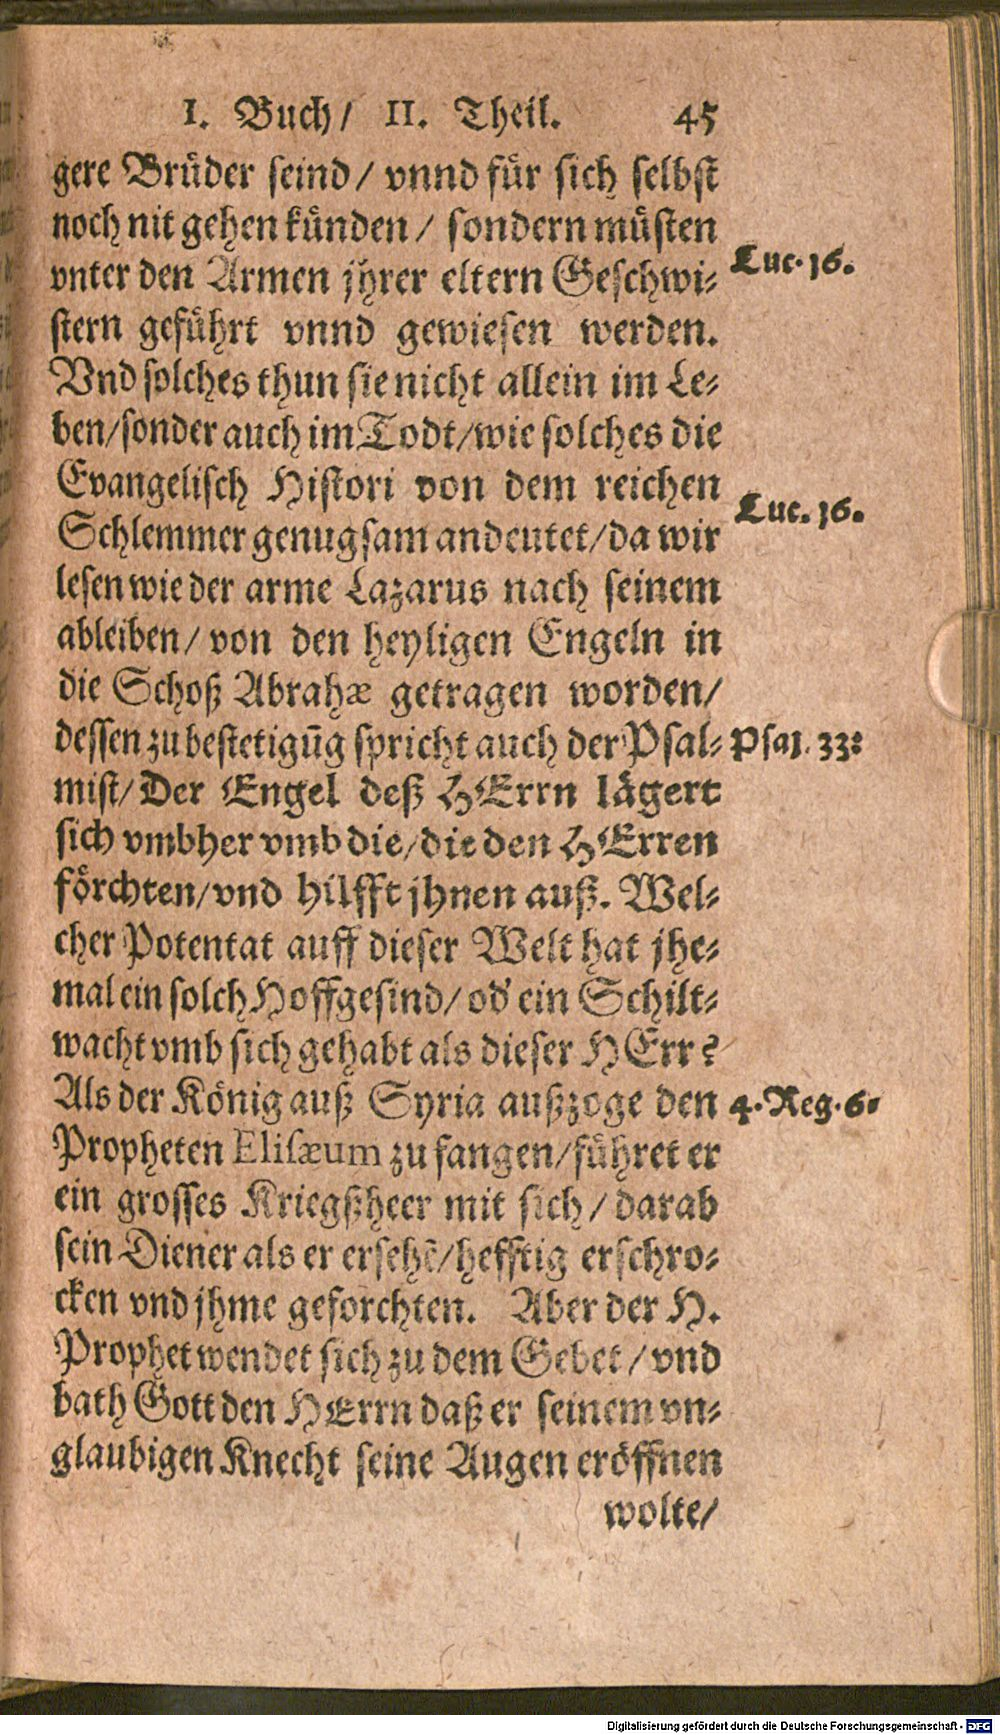 I. Buch/ II. Theil. 45
gere Brüder seind/ vnnd für sich selbst
noch nit gehen künden/ sondern müsten
vnter den Armen jhrer eltern Geschwi-
Luc. 16.
stern geführt vnnd gewiesen werden.
Vnd solches thun sie nicht allein im Le-
ben/sonder auch im Todt/wie solches die
Evangelisch Histori von dem reichen
Luc. 16.
Schlemmer genugsam andeutet/da wir
lesen wie der arme Lazarus nach seinem
ableiben/ von den heyligen Engeln in
die Schoß Abrahæ getragen worden/
dessen zu bestetigūg spricht auch der Psal-
Psal. 33:
mist/ Der Engel deß HErrn lägert
sich vmbher vmb die/die den HErren
förchten/vnd hilfft jhnen auß. Wel-
cher Potentat auff dieser Welt hat jhe-
mal ein solch Hoffgesind/ od' ein Schilt-
wacht vmb sich gehabt als dieser HErr?
Als der König auß Syria außzoge den
4. Reg. 6.
Propheten Elisæum zu fangen/führet er
ein grosses Kriegßheer mit sich/ darab
sein Diener als er ersehē/hefftig erschro-
cken vnd jhme geförchten. Aber der H.
Prophet wendet sich zu dem Gebet/ vnd
bath Gott den HErrn daß er seinem vn-
glaubigen Knecht seine Augen eröffnen
wolte/
Digitalisierung gefördert durch die Deutsche Forschungsgemeinschaft - DFG